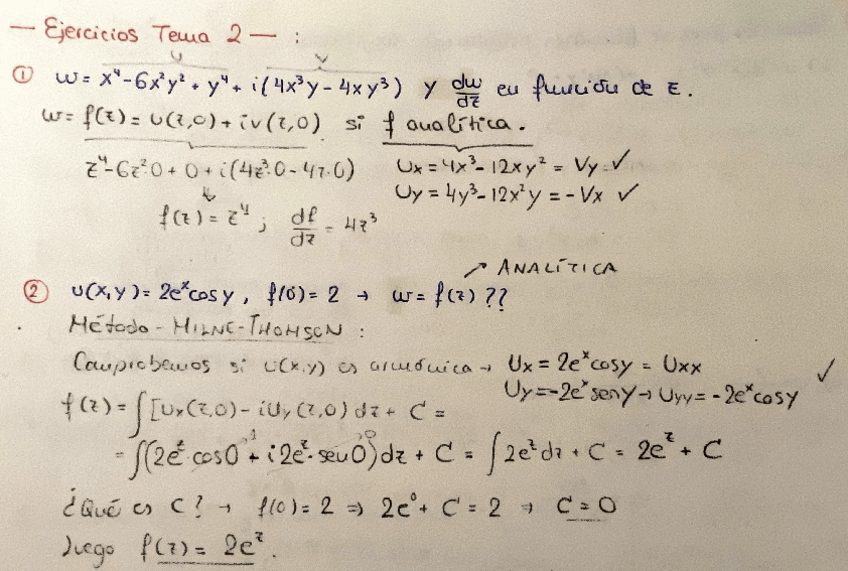 — Ejercicios Tema 2 — :
u v
① w = x⁴-6x²y²+y⁴+i(4x³y-4xy³) y dw/dz en función de z.
w = f(z) = u(z,0)+iv(z,0) si f analítica.
z⁴-6z²·0+0+i(4z³·0-4z·0) Ux = 4x³-12xy² = Vy ✓
Uy = 4y³-12x²y = -Vx ✓
f(z) = z⁴ ; df/dz = 4z³
↗ ANALÍTICA
② u(x,y) = 2eˣcosy, f(0) = 2 → w = f(z) ??
Método - MILNE-THOMSON :
Comprobamos si u(x,y) es armónica → Ux = 2eˣcosy = Uxx ✓
Uy = -2eˣseny → Uyy = -2eˣcosy
f(z) = ∫[Ux(z,0) - iUy(z,0) dz + C =
= ∫(2eᶻ·cos0 + i2eᶻ·sen0)dz + C = ∫2eᶻdz + C = 2eᶻ + C
¿Qué es C? → f(0) = 2 ⇒ 2e⁰ + C = 2 ⇒ C = 0
luego f(z) = 2eᶻ.